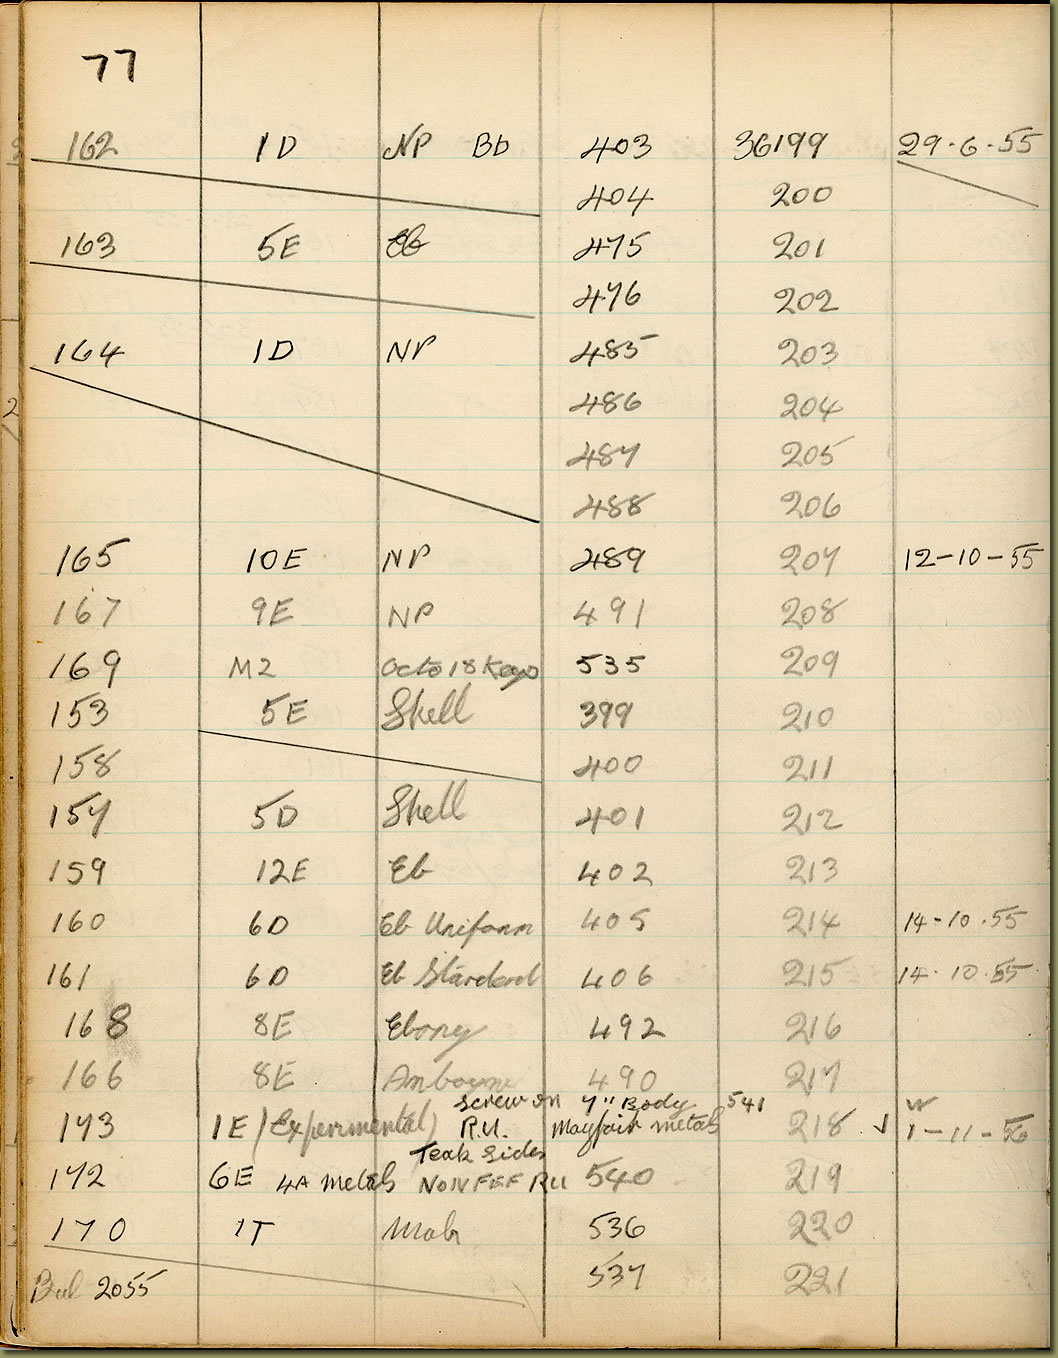 77
162 1D NP Bb 403 36199 29-6-55
404 200
163 5E Eb 475 201
476 202
164 1D NP 485 203
486 204
487 205
488 206
165 10E NP 489 207 12-10-55
167 9E NP 491 208
169 M2 Octo 18 Keys 535 209
153 5E Shell 399 210
158 400 211
157 5D Shell 401 212
159 12E Eb 402 213
160 6D Eb Uniform 405 214 14-10-55
161 6D Eb Standard 406 215 14-10-55
168 8E Ebony 492 216
166 8E Amboyne 490 217
Screw on 7" Body 541
173 1E (Experimental) R.U. Mayfair metals 218 1-11-56
Teak Sides
172 6E 4A metals NON FEF RU 540 219
170 1T Mah 536 220
2055 537 221